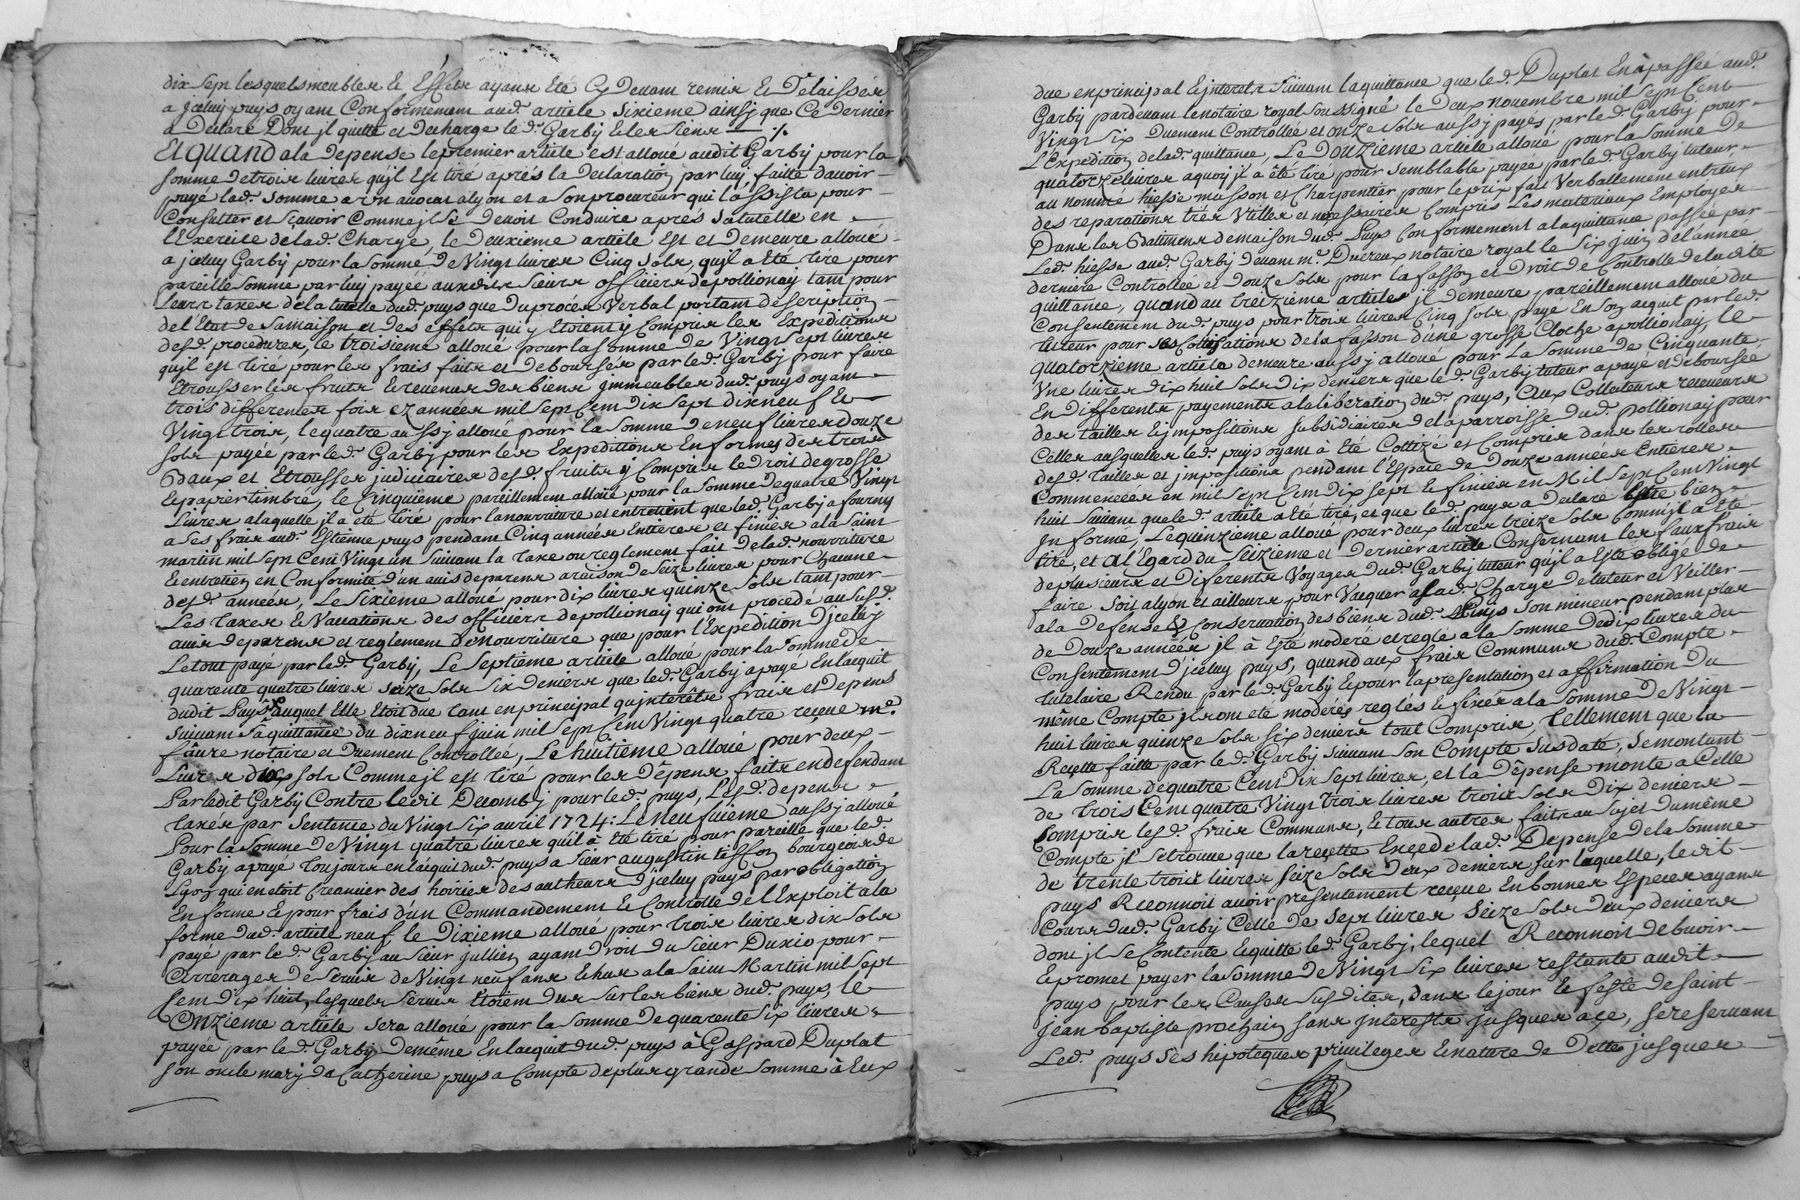 dix sept lesquels meubles et Effets ayant Eté Cy devant remis et Delaissés
a Jceluy puys oyant Conformement aud. article Sixieme ainsy que Ce dernier
a Declaré Dont jl quitte et decharge led. Garby et les siens
Et QUAND a la depense le premier article est alloué audit Garby pour la
somme de trois livres qu'jl Est tiré après la declaration par luy faitte davoir
payé lad. somme a un avocat a lyon et a son procureur qui l'assista pour
Consulter et scavoir Comme jl se devoit Conduire apres sa tutelle en
l'Exercice de la d. Charge, le deuxieme article Est et demeure alloué
a jceluy Garby pour la somme de Vingt livres Cinq sols, qu'jl a Eté tiré pour
pareille somme par luy payée auxdits sieurs officiers de pollionay tant pour
leurs taxes de la tutelle dud. puys que du procés Verbal portant description
de l'Etat de sa maison et des effets qui y Etoient y Compris les Expeditions
desd. procedures, le troisieme alloué pour la somme de Vingt sept livres
qu'jl est tiré pour les frais faits et deboursés par led. Garby pour faire
Etrousser les fruits et revenus des biens jmmeubles dud. puys oyant
trois differentes fois ez années mil sept Cent dix sept dix neuf et
Vingt trois, le quatre aussy alloué pour la somme de neuf livres douze
sols payée par led. Garby pour les Expeditions En formes des trois
Baux et Etrousses judiciaires desd. fruits y Compris le droit de grosse
et papier timbré, le Cinquieme pareillement alloué pour la somme de quatre Vingt
livres a laquelle jl a été tiré pour la nourriture et entretient que led. Garby a fourny
a ses frais aud. Estienne puys pendant Cinq années Entieres et finies a la saint
martin mil sept Cent Vingt un suivant la taxe ou reglement fait de lad. nourriture
et entretien en Conformité d'un avis de parens a raison de seize livres pour Chacune
desd. années, Le sixieme alloué pour dix livres quinze sols tant pour
Les taxes et Vacations des officiers de pollionay qui ont procedé au susd.
avis de parens et reglement de Nourriture que pour l'Expedition d'jceluy
Le tout payé par led. Garby, Le septieme article alloué pour la somme de
quarente quatre livres seize sols six deniers que led. Garby a payé en l'acquit
dudit Puys auquel Elle Etoit due tant en principal qu'interêts frais et depens
suivant sa quittance du dix neuf juin mil sept Cent Vingt quatre reçue me.
faure notaire et Duement Controllée, Le huitieme alloué pour deux
Livres dix sols Comme jl est tiré pour les dépens faits en defendant
Par ledit Garby Contre ledit Decomby pour led. puys, lesd. depens
taxés par sentence du Vingt six avril 1724: Le neufvieme aussy alloué
Pour la somme de Vingt quatre livres qu'il a été tiré pour pareille que led.
Garby a payé toujours en l'acquit dud. puys a sieur augustin bourgeois de
Lyon qui en etoit Creancier des hoiries des autheurs d'jceluy puys par obligation
En forme et pour frais d'un Commandement et Controlle de l'Exploit a la
forme dud. article neuf le Dixieme alloué pour trois livres dix sols
payé par led. Garby au sieur jullien ayant droit du sieur Duxio pour
arrerages de servis de Vingt neuf ans Echus a la saint Martin mil sept
Cent dix huit, lesquels servis Etoient dus sur les biens dud. puys, le
Onzieme article sera alloué pour la somme de quarente six livres
payée par led. Garby demême En lacquit dud. puys a Gaspard Duplat
son oncle mary de Catherine puys a Compte de plus grande somme à Eux
due en principal et jnterets suivant la quittance que led. Duplat En a passée aud.
Garby pardevant le notaire royal soussigné le deux novembre mil sept Cent
Vingt six Duement Controllée et onze sols aussy payés par led. Garby pour
l'Expedition de lad. quittance, Le DOUZIEME article alloué pour la somme de
quatorze livres a quoy jl a été tiré pour semblable payée par led. Garby tuteur
au nommé hiesse masson et Charpentier pour le prix fait Verballement entr'eux
des reparations trés Utiles et necessaires Compris Les materiaux Employés
Dans les Batimens de maison dud. Puys Conformement a la quittance passée par
Led. hiesse aud. Garby devant me. Ducreux notaire royal le six juin de l'année
derniere Controllée et douze sols pour la fasson et Droit de Controlle de la dite
quittance, quand au treizieme article jl demeure pareillement alloué du
Consentement dud. puys pour trois livres Cinq sols payé En son acquit par led.
tuteur pour ses Cottisations de la fasson d'une grosse Cloche a pollionay, le
quatorzieme article demeure aussy alloué pour la somme de Cinquante
Une livres dix huit sols dix deniers que led. Garby tuteur a payé et deboursée
En differents payements a la liberation dud. puys, aux Collecteurs receveurs
des tailles et jmpositions subsidiaires de la parroisse dud. pollionay pour
Celles ausquelles led. puys oyant à Eté Cottizé et Compris dans les rolles
desd. tailles et jmpositions pendant l'Espace de Douze années Entieres
Commencées en mil sept Cent dix sept et finies en Mil sept Cent Vingt
huit suivant que led. article a Eté tiré, et que led. puys a declaré Estre bien
jn forme, Le quinzieme alloué pour deux livres treize sols Comme jl a Eté
tiré, et a l'Egard du seizieme et dernier article Consernant les faux frais
de plusieurs et differents Voyages dud. Garby tuteur qu'jl a Esté obligé de
faire soit a lyon et ailleurs pour Vacquer a sad. Charge de tuteur et Veiller
a la defense & Conservation des biens dud. Puys son mineur pendant plus
de Douze années jl à Esté moderé et reglé a la somme de dix livres du
Consentement d'jceluy puys, quand aux frais Communs dud. Compte
tutelaire Rendu par led. Garby et pour la presentation et affirmation du
même Compte jls ont eté moderés reglés et fixés a la somme de Vingt
huit livres quinze sols six deniers tout Compris, tellement que la
Recette faitte par led. Garby suivant son Compte susdate, se montant
La somme de quatre Cent dix sept livres, et la Dépense monte a Celle
de trois Cent quatre Vingt trois livres trois sols dix deniers
Compris lesd. frais Communs, et tous autres faits au sujet du même
Compte jl se trouve que la recette Excede lad. Depense de la somme
de trente trois livres seize sols deux deniers sur laquelle, ledit
puys Reconnoit avoir presentement reçeue En bonnes Especes ayant
Cours dud. Garby Celle de sept livres seize sols deux deniers
dont jl se Contente et quitte led. Garby, lequel Reconnoit debvoir
et promet payer la somme de Vingt six livres restante audit
puys pour les Causes susdites, dans le jour et feste de saint
jean baptiste prochain sans jnterests jusques a ce, se reservant
Led. puys ses hipoteques privileges et nature de Dette jusques